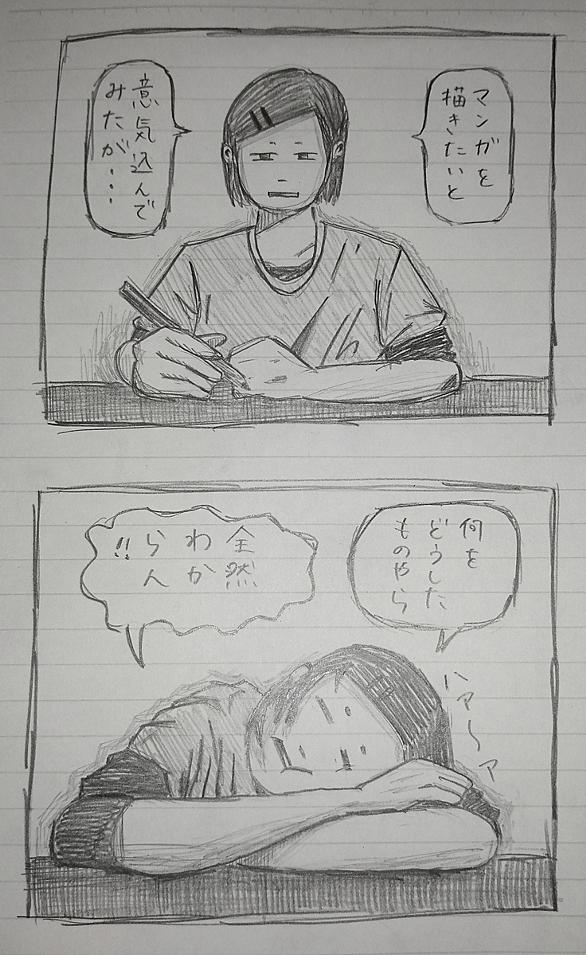 マンガを
描きたいと
意気込んで
みたが・・・
何を
どうした
ものやら
全然
わか
らん
!!
ハァ〜ァ